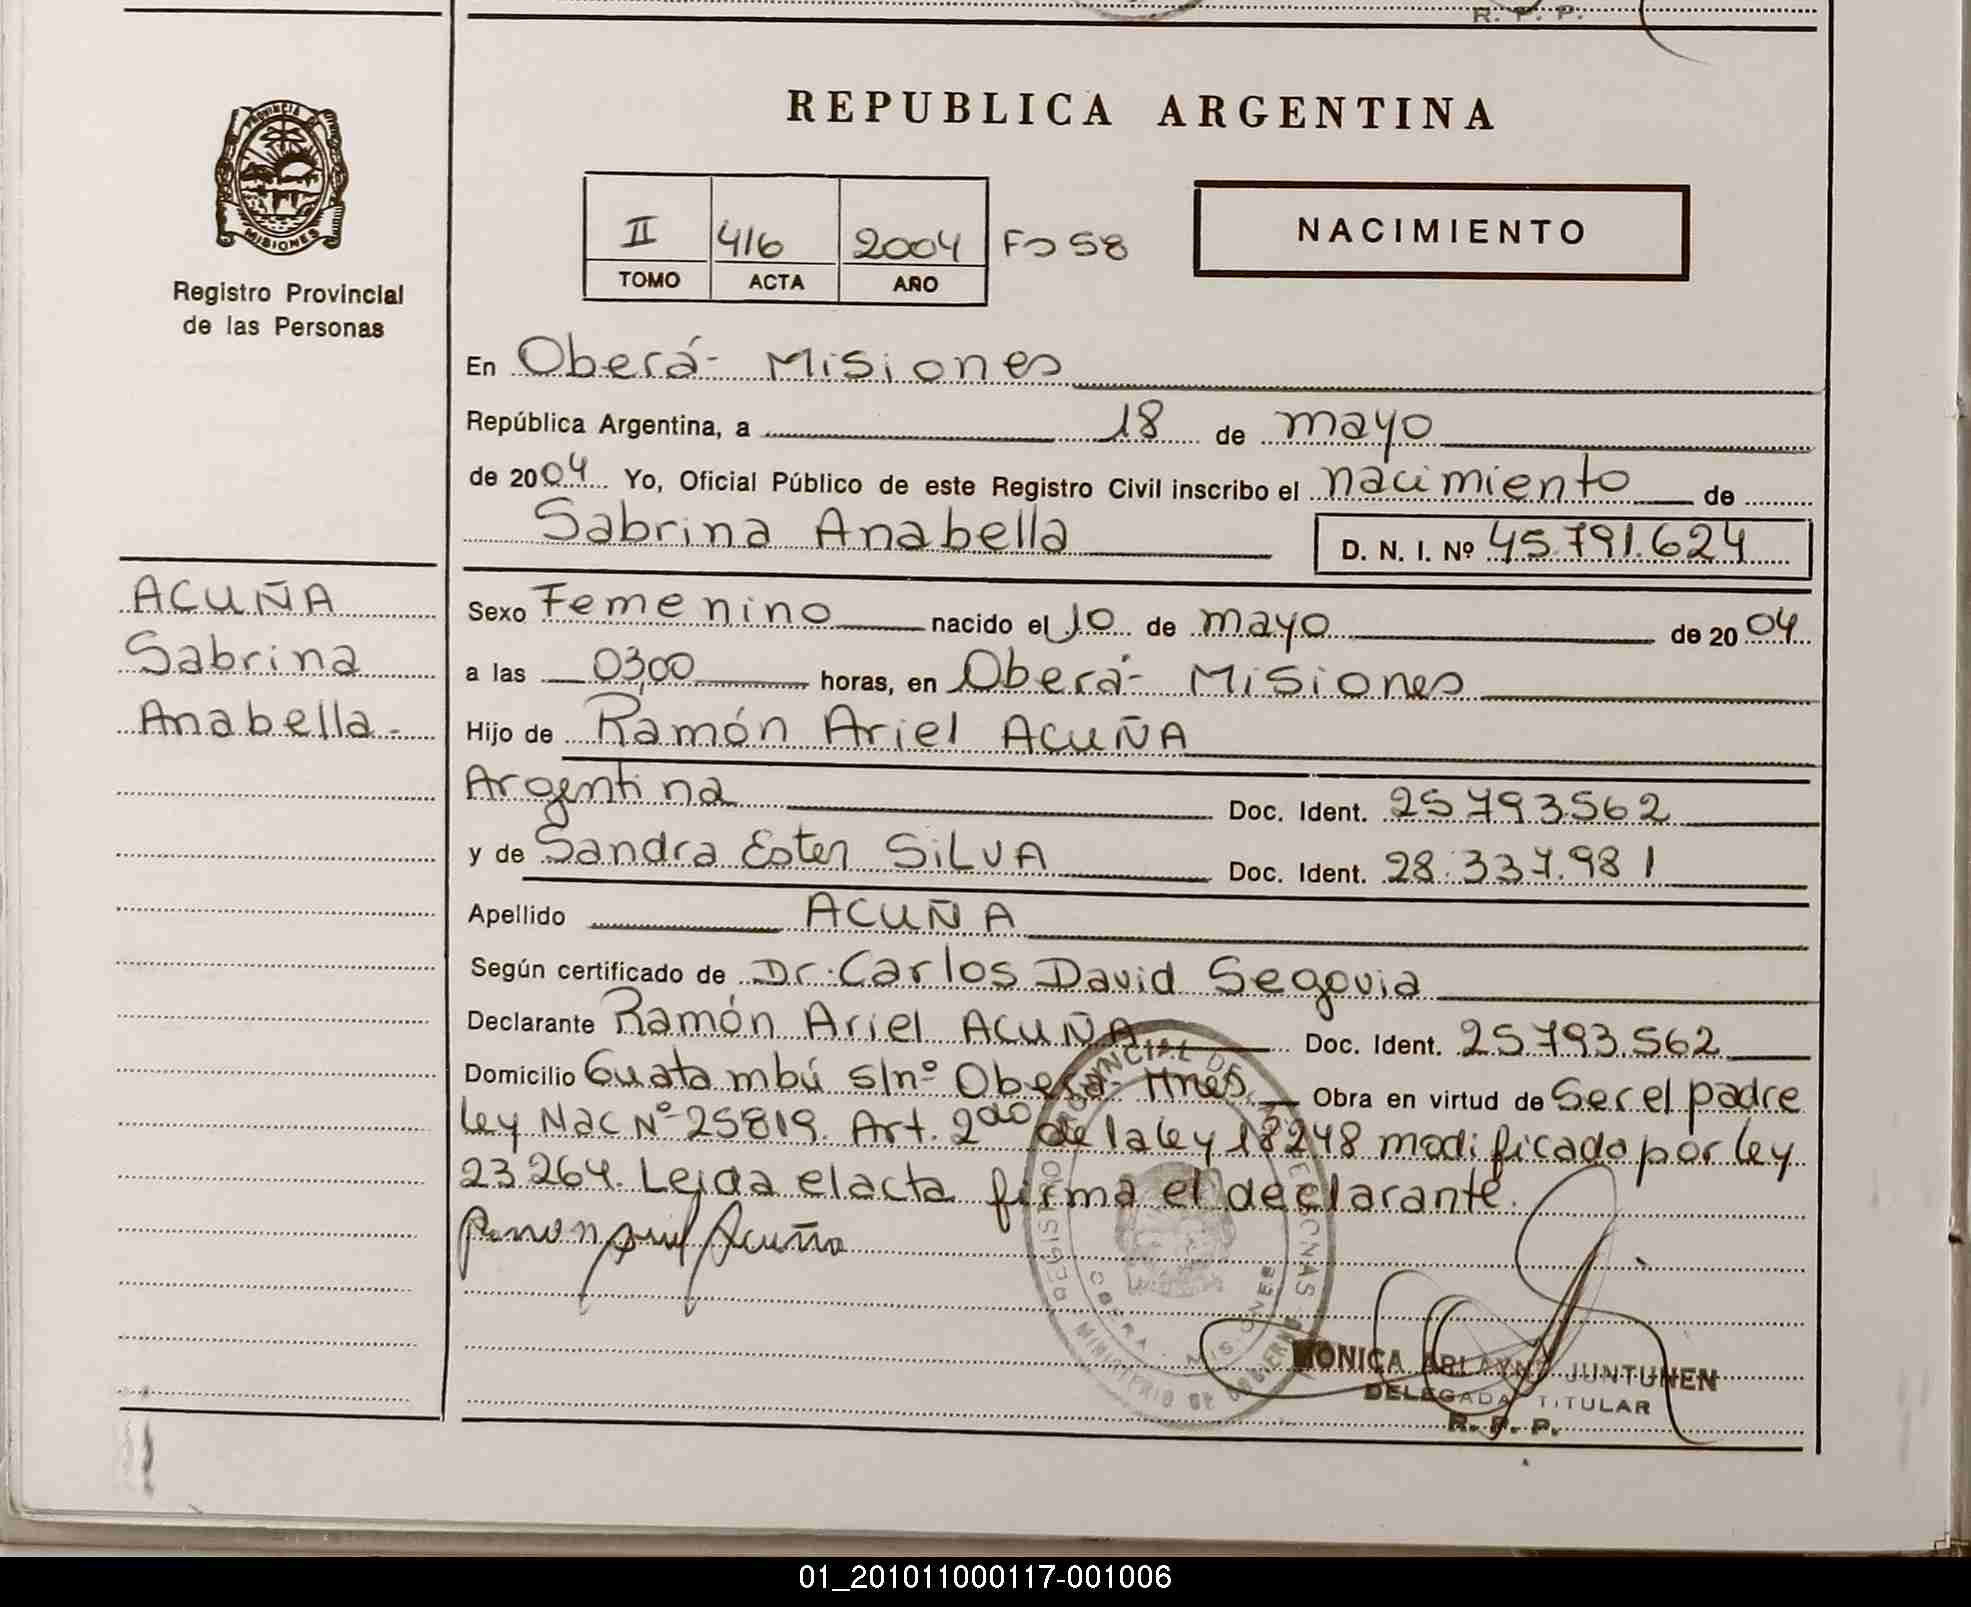 R. P. P.
PROVINCIA DE
MISIONES
Registro Provincial
de las Personas
REPUBLICA ARGENTINA
II 416 2004 Fo 58
TOMO ACTA AÑO
NACIMIENTO
En Oberá - Misiones
República Argentina, a 18 de mayo
de 2004 Yo, Oficial Público de este Registro Civil inscribo el nacimiento de
Sabrina Anabella D. N. I. Nº 45.791.624
ACUÑA
Sabrina
Anabella -
Sexo Femenino nacido el 10 de mayo de 2004
a las 03,00 horas, en Oberá - Misiones
Hijo de Ramón Ariel ACUÑA
Argentina Doc. Ident. 25793562
y de Sandra Ester SILVA Doc. Ident. 28.337.981
Apellido ACUÑA
Según certificado de Dr. Carlos David Segovia
Declarante Ramón Ariel ACUÑA Doc. Ident. 25793.562
Domicilio Guatambú s/nº Oberá - Mnes Obra en virtud de Ser el padre
ley Nac Nº 25819. Art. 2do de la ley 18248 modificado por ley
23264. Leida el acta firma el declarante.
Ramon Ariel Acuña
PROVINCIAL DE PERSONAS
OBERA - MISIONES
MINISTERIO DE GOBIERNO
MONICA ARLAYNE JUNTUNEN
DELEGADA TITULAR
R. P. P.
01_201011000117-001006